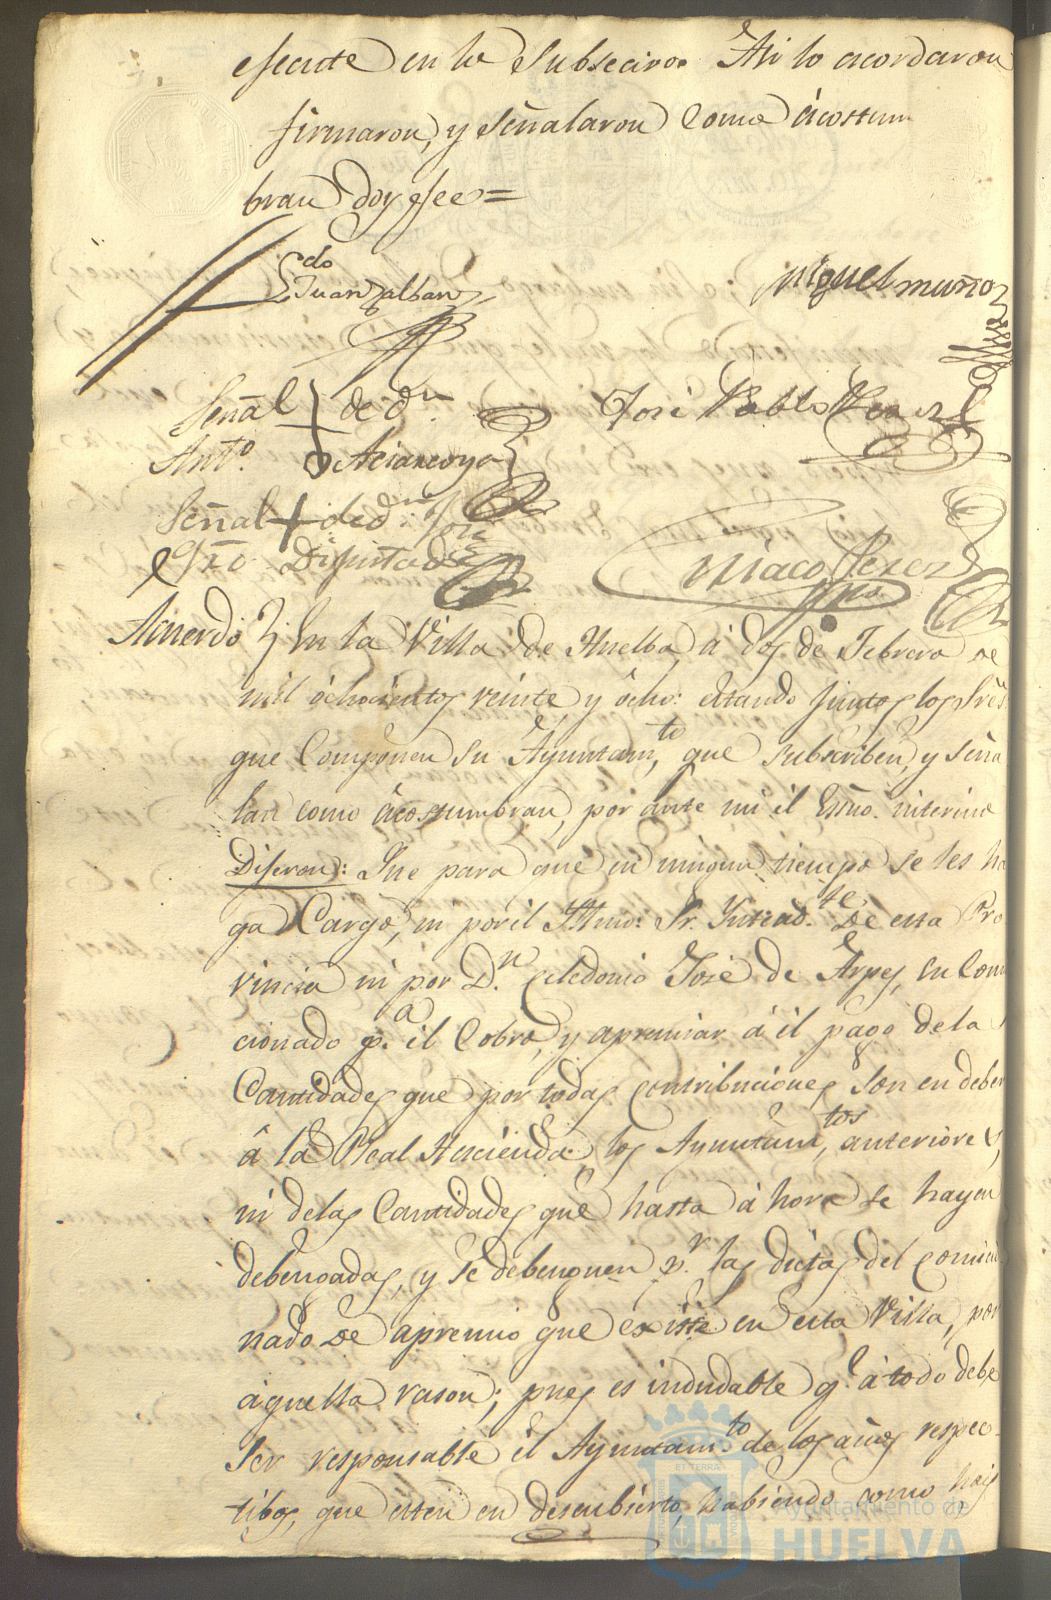 efecute en lo Subsecivo. Asi lo acordaron
firmaron, y Señalaron Como ácostum
bran doy fee=
Ldo
Juan Zalbany
Miguel Muñoz
Señal de dn
José Pablo Perez
Anto.
Señal + de dn
Diputado
Niaco Perez
Acuerdo En la Villa de Huelba, á dos de Febrero de
mil ôchocientos veinte, y ôcho: estando juntos los Sres.
que Componen Su Ayuntamto, que subscriben, y seña
lan como ácostumbran, por ante mi el Essño. interino
Diferon: Que para que en ningun tiempo se les ha
ga Cargo, ni por il Yltmo. Sr. Yntendte. De esta Pro
vincia ni por Dn. Celedonio José de Arpe, en Comi
cionado pa. il Cobro, y apremiar á il pago dela
Cantidades que por todas contribuciones son en deber
â la Real Hacienda, los Ayuntamtos, anteriores,
ni delas Cantidades que hasta á hora se hayan
debengadas, y se debenguen pr. las dietas del Comicio
nado de apremio que existe en esta Villa, por
áquella rason; pues es indudable qe. á todo debe
Ser responsable el Ayuntamto. de los años respec-
tibos, que esten en descubierto, habiendo como hais
ET TERRÆ
Ayuntamiento de
HUELVA